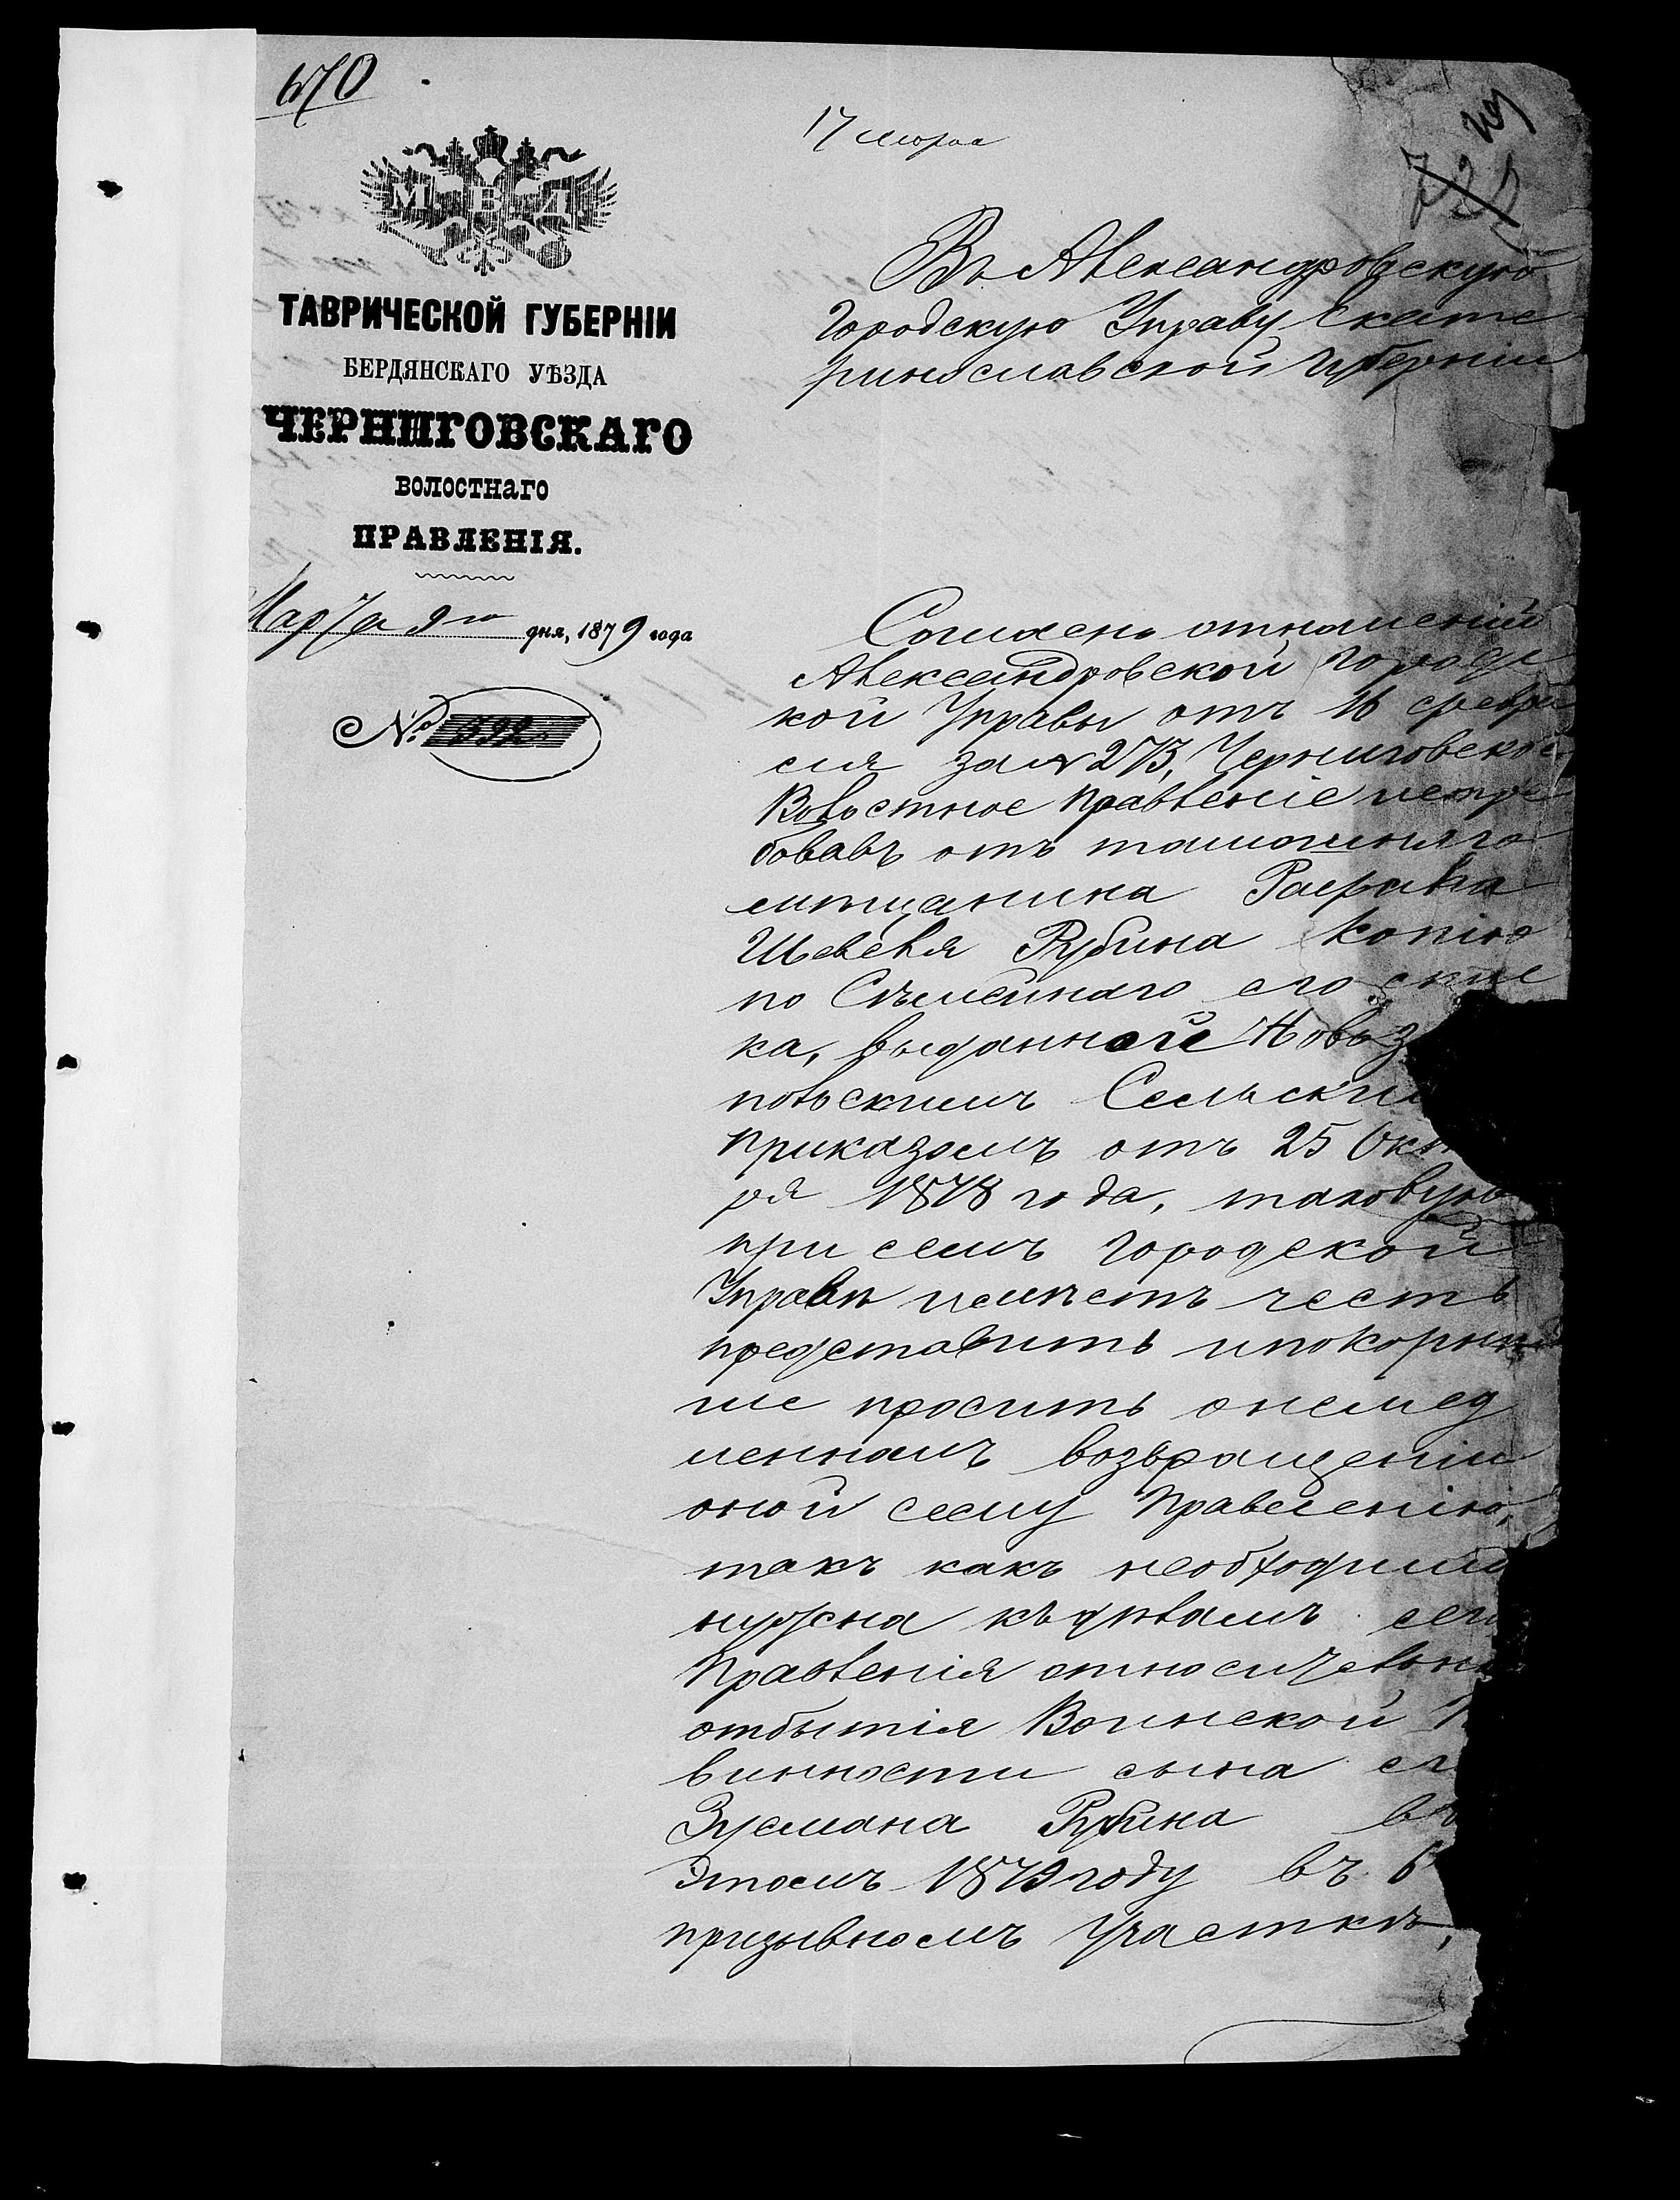 670
17 Марта
М. В. Д.
ТАВРИЧЕСКОЙ ГУБЕРНІИ
БЕРДЯНСКАГО УѢЗДА
ЧЕРНИГОВСКАГО
ВОЛОСТНАГО
ПРАВЛЕНІЯ.
Марта 9го дня, 1879 года
№ 592
Въ Александровскую
Городскую Управу Екате
ринославской Губерніи
Согласно отношенія
Александровской Городс
кой Управы отъ 16 Февра
ля за № 273, Черниговское
Волостное Правленіе истре
бовавъ отъ тамошняго
мѣщанина Рафаила
Шевеля Рубина копію
по Сѣмейнаго его спис
ка, выданной Ново
Сельски
приказомъ отъ 25 Окт
ря 1878 года, таковую
при семъ городской
Управѣ имѣетъ честь
представить и покорнѣй
ше просить о немед
ленномъ возвращеніи
оной сему Правленію,
такъ какъ необходимо
нужна къ дѣламъ сего
Правленія относительно
отбытія Воинской П
винности сына ег
Зусмана Рубина въ
этомъ 1879 году въ 6
призывномъ участкѣ,